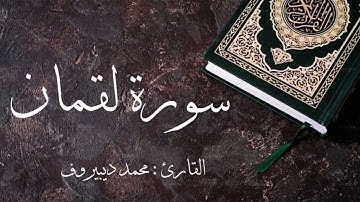 سورة لقمان
القارئ : محمد ديبيروف